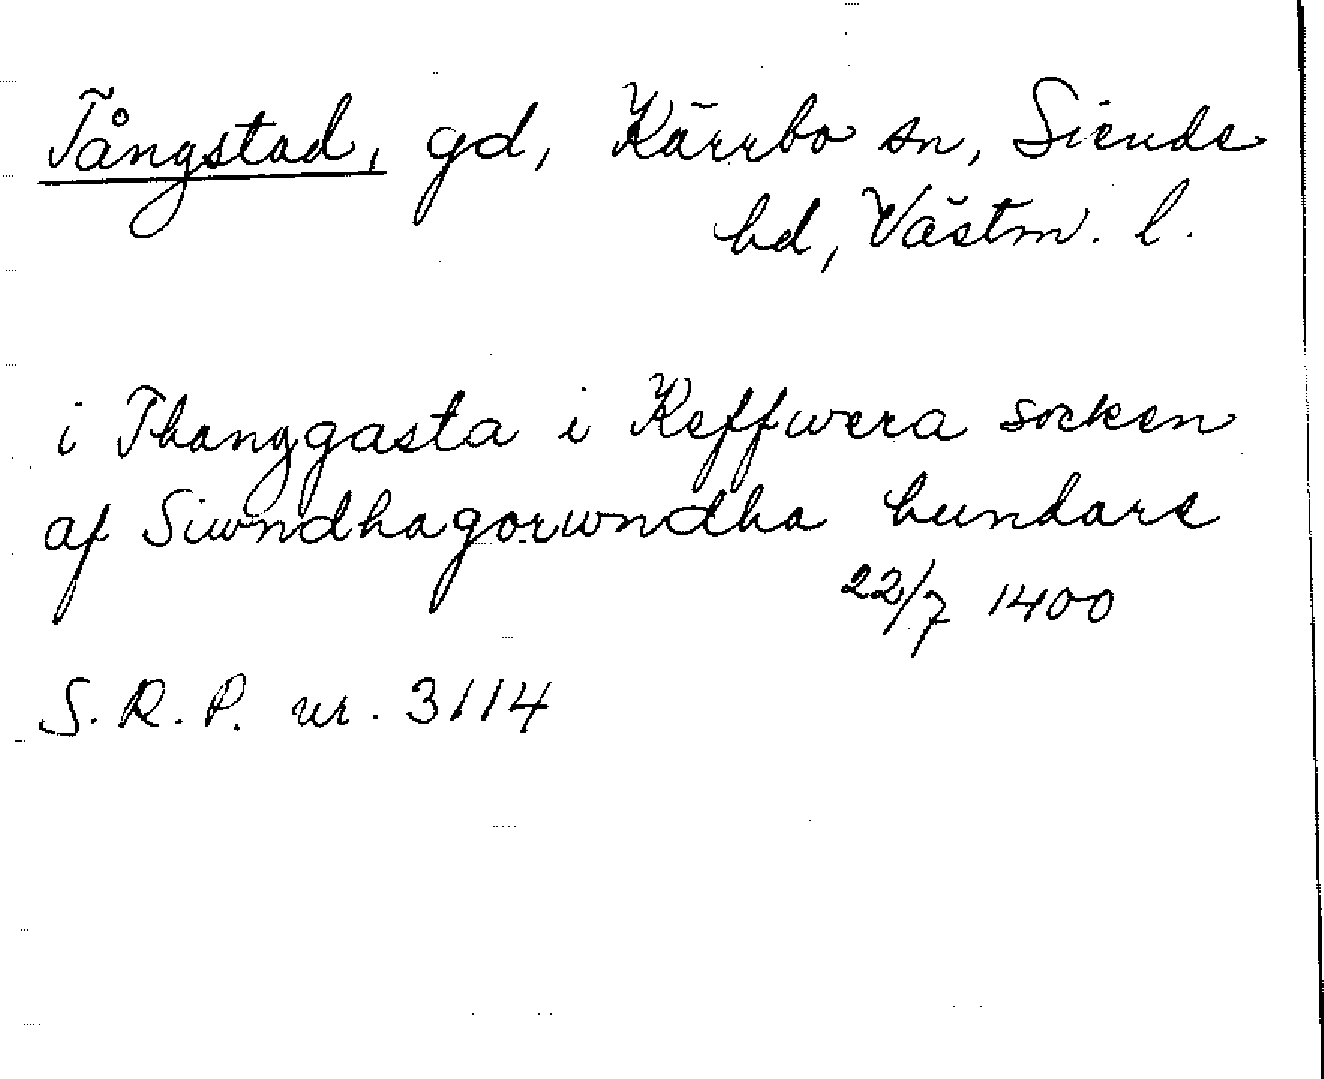 Tångstad, gd, Kärrbo sn, Siende
hd, Västm. l.
i Thanggasta i Keffwera socken
af Siwndhagorwndha hundare
22/7 1400
S.R.P. nr. 3114